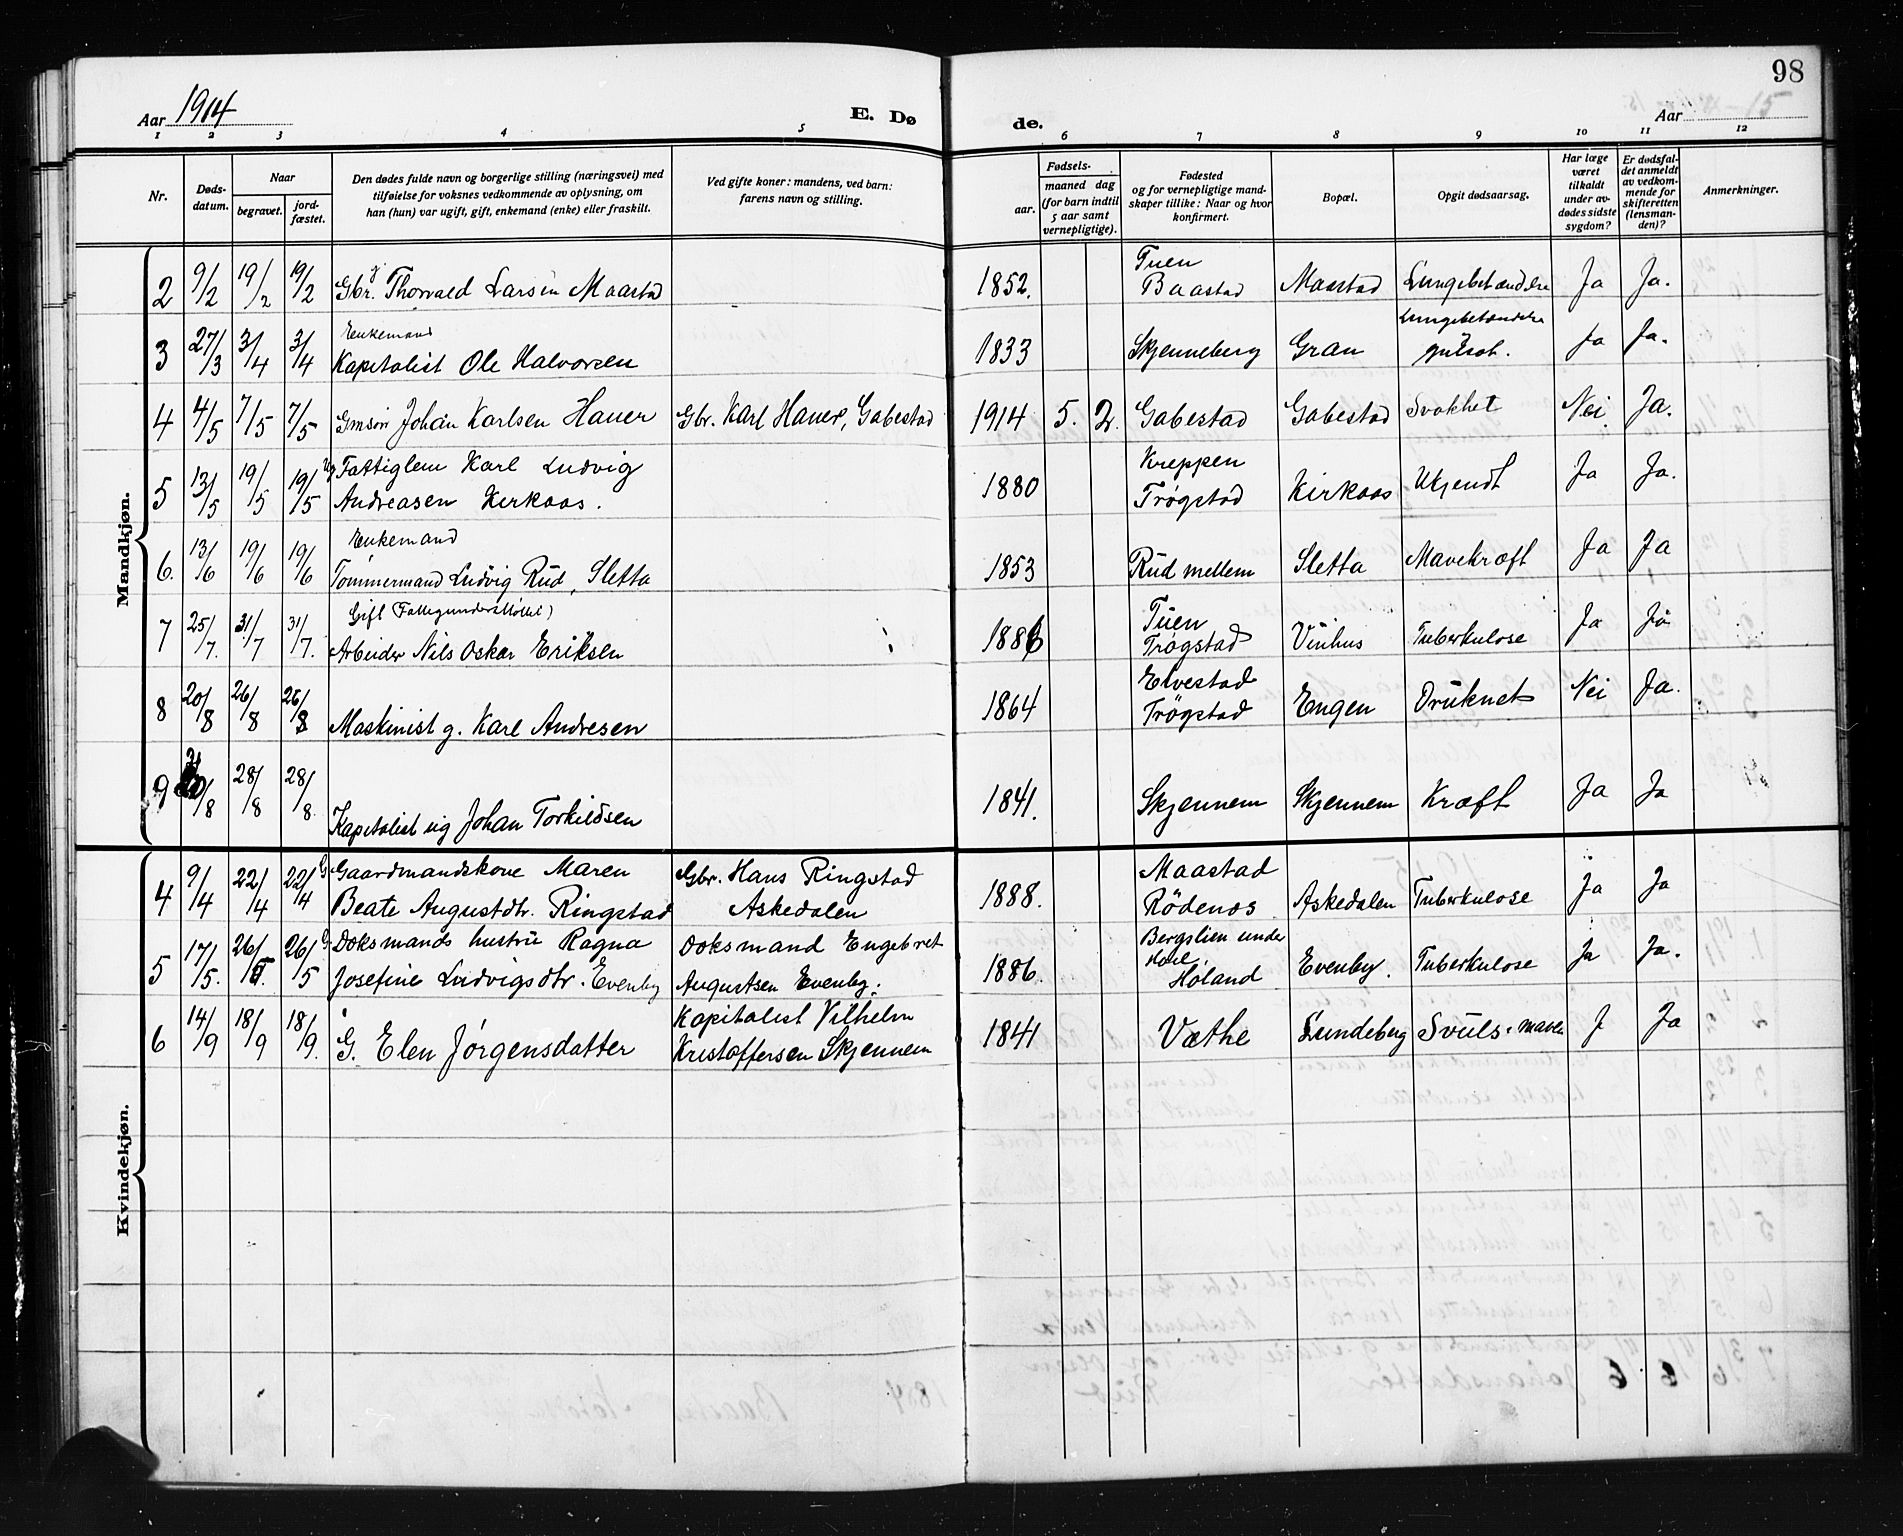 98
Aar 1914
E. Dø
de.
Aar 15
1 2 3 4 5 6 7 8 9 10 11 12
Nr.
Døds-
datum.
Naar
begravet.
jord-
fæstet.
Den dødes fulde navn og borgerlige stilling (næringsvei) med
tilføielse for voksnes vedkommende av oplysning, om
han (hun) var ugift, gift, enkemand (enke) eller fraskilt.
Ved gifte koner: mandens, ved barn:
farens navn og stilling.
Fødsels-
aar.
maaned dag
(for barn indtil
5 aar samt
vernepligtige).
Fødested
og for vernepligtige mand-
skaper tillike: Naar og hvor
konfirmert.
Bopæl.
Opgit dødsaarsag.
Har læge
været
tilkaldt
under av-
dødes sidste
sygdom?
Er dødsfal-
det anmeldt
av vedkom-
mende for
skifteretten
(lensman-
den)?
Anmerkninger.
Mandkjøn.
2 9/2 19/2 19/2 Gbr. g Thorvald Larsen Maastad 1852. Tuen
Baastad Maastad Lungebetændelse Ja Ja.
3 27/3 3/4 3/4 Enkemand
Kapitalist Ole Halvorsen 1833 Skjenneberg Gran Lungebetændelse
gulsot. Ja Ja.
4 4/5 7/5 7/5 Gmsøn Johan Karlsen Hauer Gbr. Karl Hauer, Gabestad 1914 5. 2. Gabestad Gabestad Svakhet Nei Ja.
5 13/5 19/5 19/5 Ug Fattiglem Karl Ludvig
Andreasen Kirkaas. 1880 Kreppen
Trøgstad Kirkaas Ukjendt Ja Ja.
6. 13/6 19/6 19/6 Enkemand
Tømmermand Ludvig Rud, Sletta 1853 Rud mellem Sletta Mavekræft Ja Ja
7 25/7. 31/7 31/7. Gift
Arbeider Nils Oskar Eriksen 1886 Tuen
Trøgstad Vinhus Tuberkulose Ja Ja
8 20/8 26/8 26/8 Maskinist g. Karl Andresen 1864 Elvestad
Trøgstad Engen Druknet Nei Ja.
9 /8 28/8 28/8. Kapitalist ug Johan Torkildsen 1841. Skjennem Skjennem Kræft Ja Ja
Kvindekjøn.
4 9/4 22/4 22/4 G Gaardmandskone Maren
Beate Augustdtr. Ringstad Gbr. Hans Ringstad
Askedalen 1888. Maastad
Rødenes Askedalen Tuberkulose Ja Ja
5 17/5. 26/5. 26/5 G Doksmands hustru Ragna
Josefine Ludvigsdtr. Evenby Doksmand Engebret
Augustsen Evenby. 1886. Bergslien under
Høland Evenby. Tuberkulose Ja Ja.
6 14/9 18/9 18/9. G. Elen Jørgensdatter Kapitalist Vilhelm
Kristoffersen Skjennem 1841 Væthe Lundeberg Svuls. mave J Ja